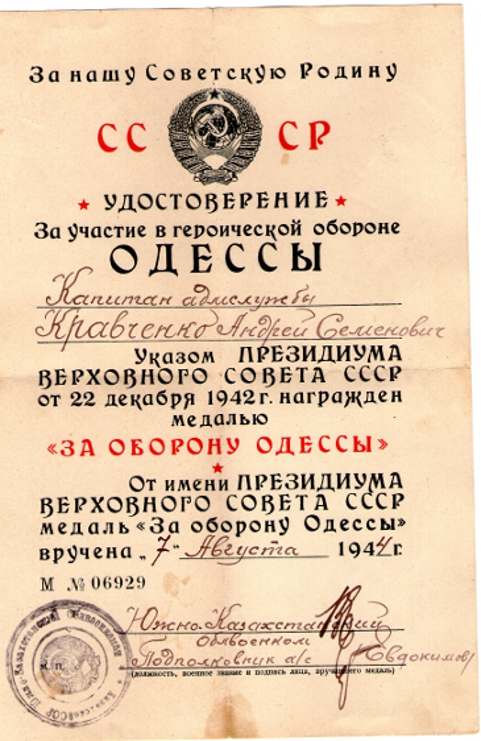 За нашу Советскую Родину
СС СР
УДОСТОВЕРЕНИЕ
За участие в героической обороне
ОДЕССЫ
Капитан адмслужбы
Кравченко Андрей Семенович
Указом ПРЕЗИДИУМА
ВЕРХОВНОГО СОВЕТА СССР
от 22 декабря 1942 г. награжден
медалью
«ЗА ОБОРОНУ ОДЕССЫ»
От имени ПРЕЗИДИУМА
ВЕРХОВНОГО СОВЕТА СССР
медаль «За оборону Одессы»
вручена „7" Августа 1944 г.
М № 06929
Южно-Казахстанский
облвоенком
Подполковник а/с Евдокимов
(должность, военное звание и подпись лица, вручившего медаль)
М. П.